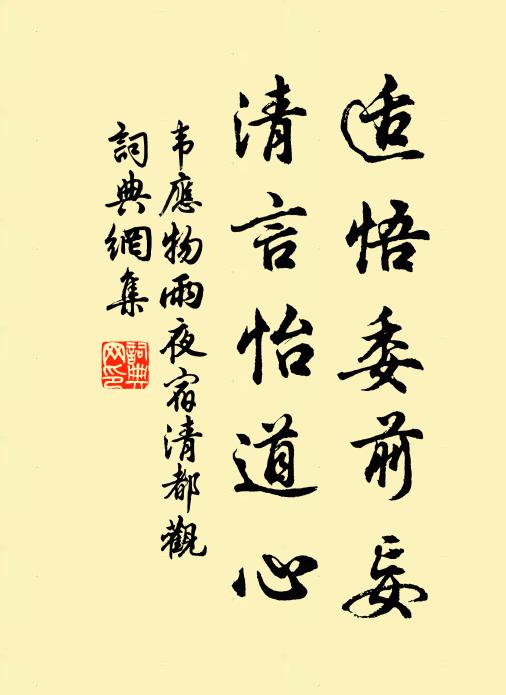 适悟委前妄
清言怡道心
韦應物雨夜宿清都觀
詞典網集
詞典网印